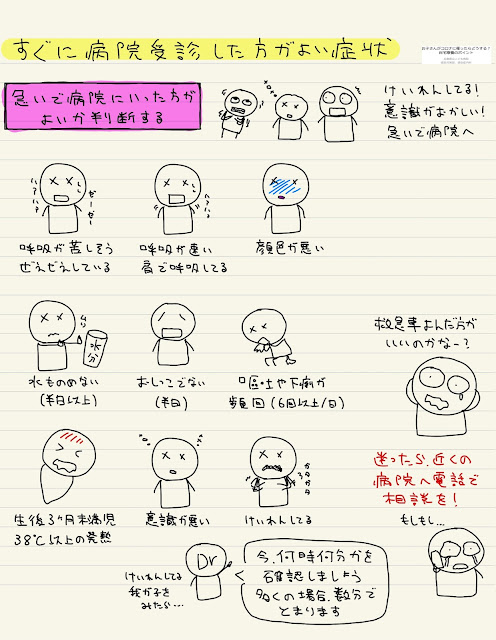 すぐに病院受診した方がよい症状
お子さんがコロナに罹ったらどうする!
自宅療養のポイント
急いで病院にいった方が
よいか判断する
けいれんしてる!
意識がおかしい!
急いで病院へ
ハァハァ
ゼーゼー
ハァハァ
呼吸が苦しそう
ぜえぜえしている
呼吸が速い
肩で呼吸してる
顔色が悪い
ムリ
水分
水ものめない
(半日以上)
おしっこでない
(半日)
嘔吐や下痢が
頻回(6回以上/日)
救急車よんだ方が
いいのかなー?
生後3ヶ月未満児
38℃以上の発熱
意識が悪い
ガタガタ
けいれんしてる
迷ったら、近くの
病院へ電話で
相談を!
もしもし...
Dr
けいれんしてる
我が子を
みたら...
今、何時何分かを
確認しましょう
多くの場合、数分で
とまります